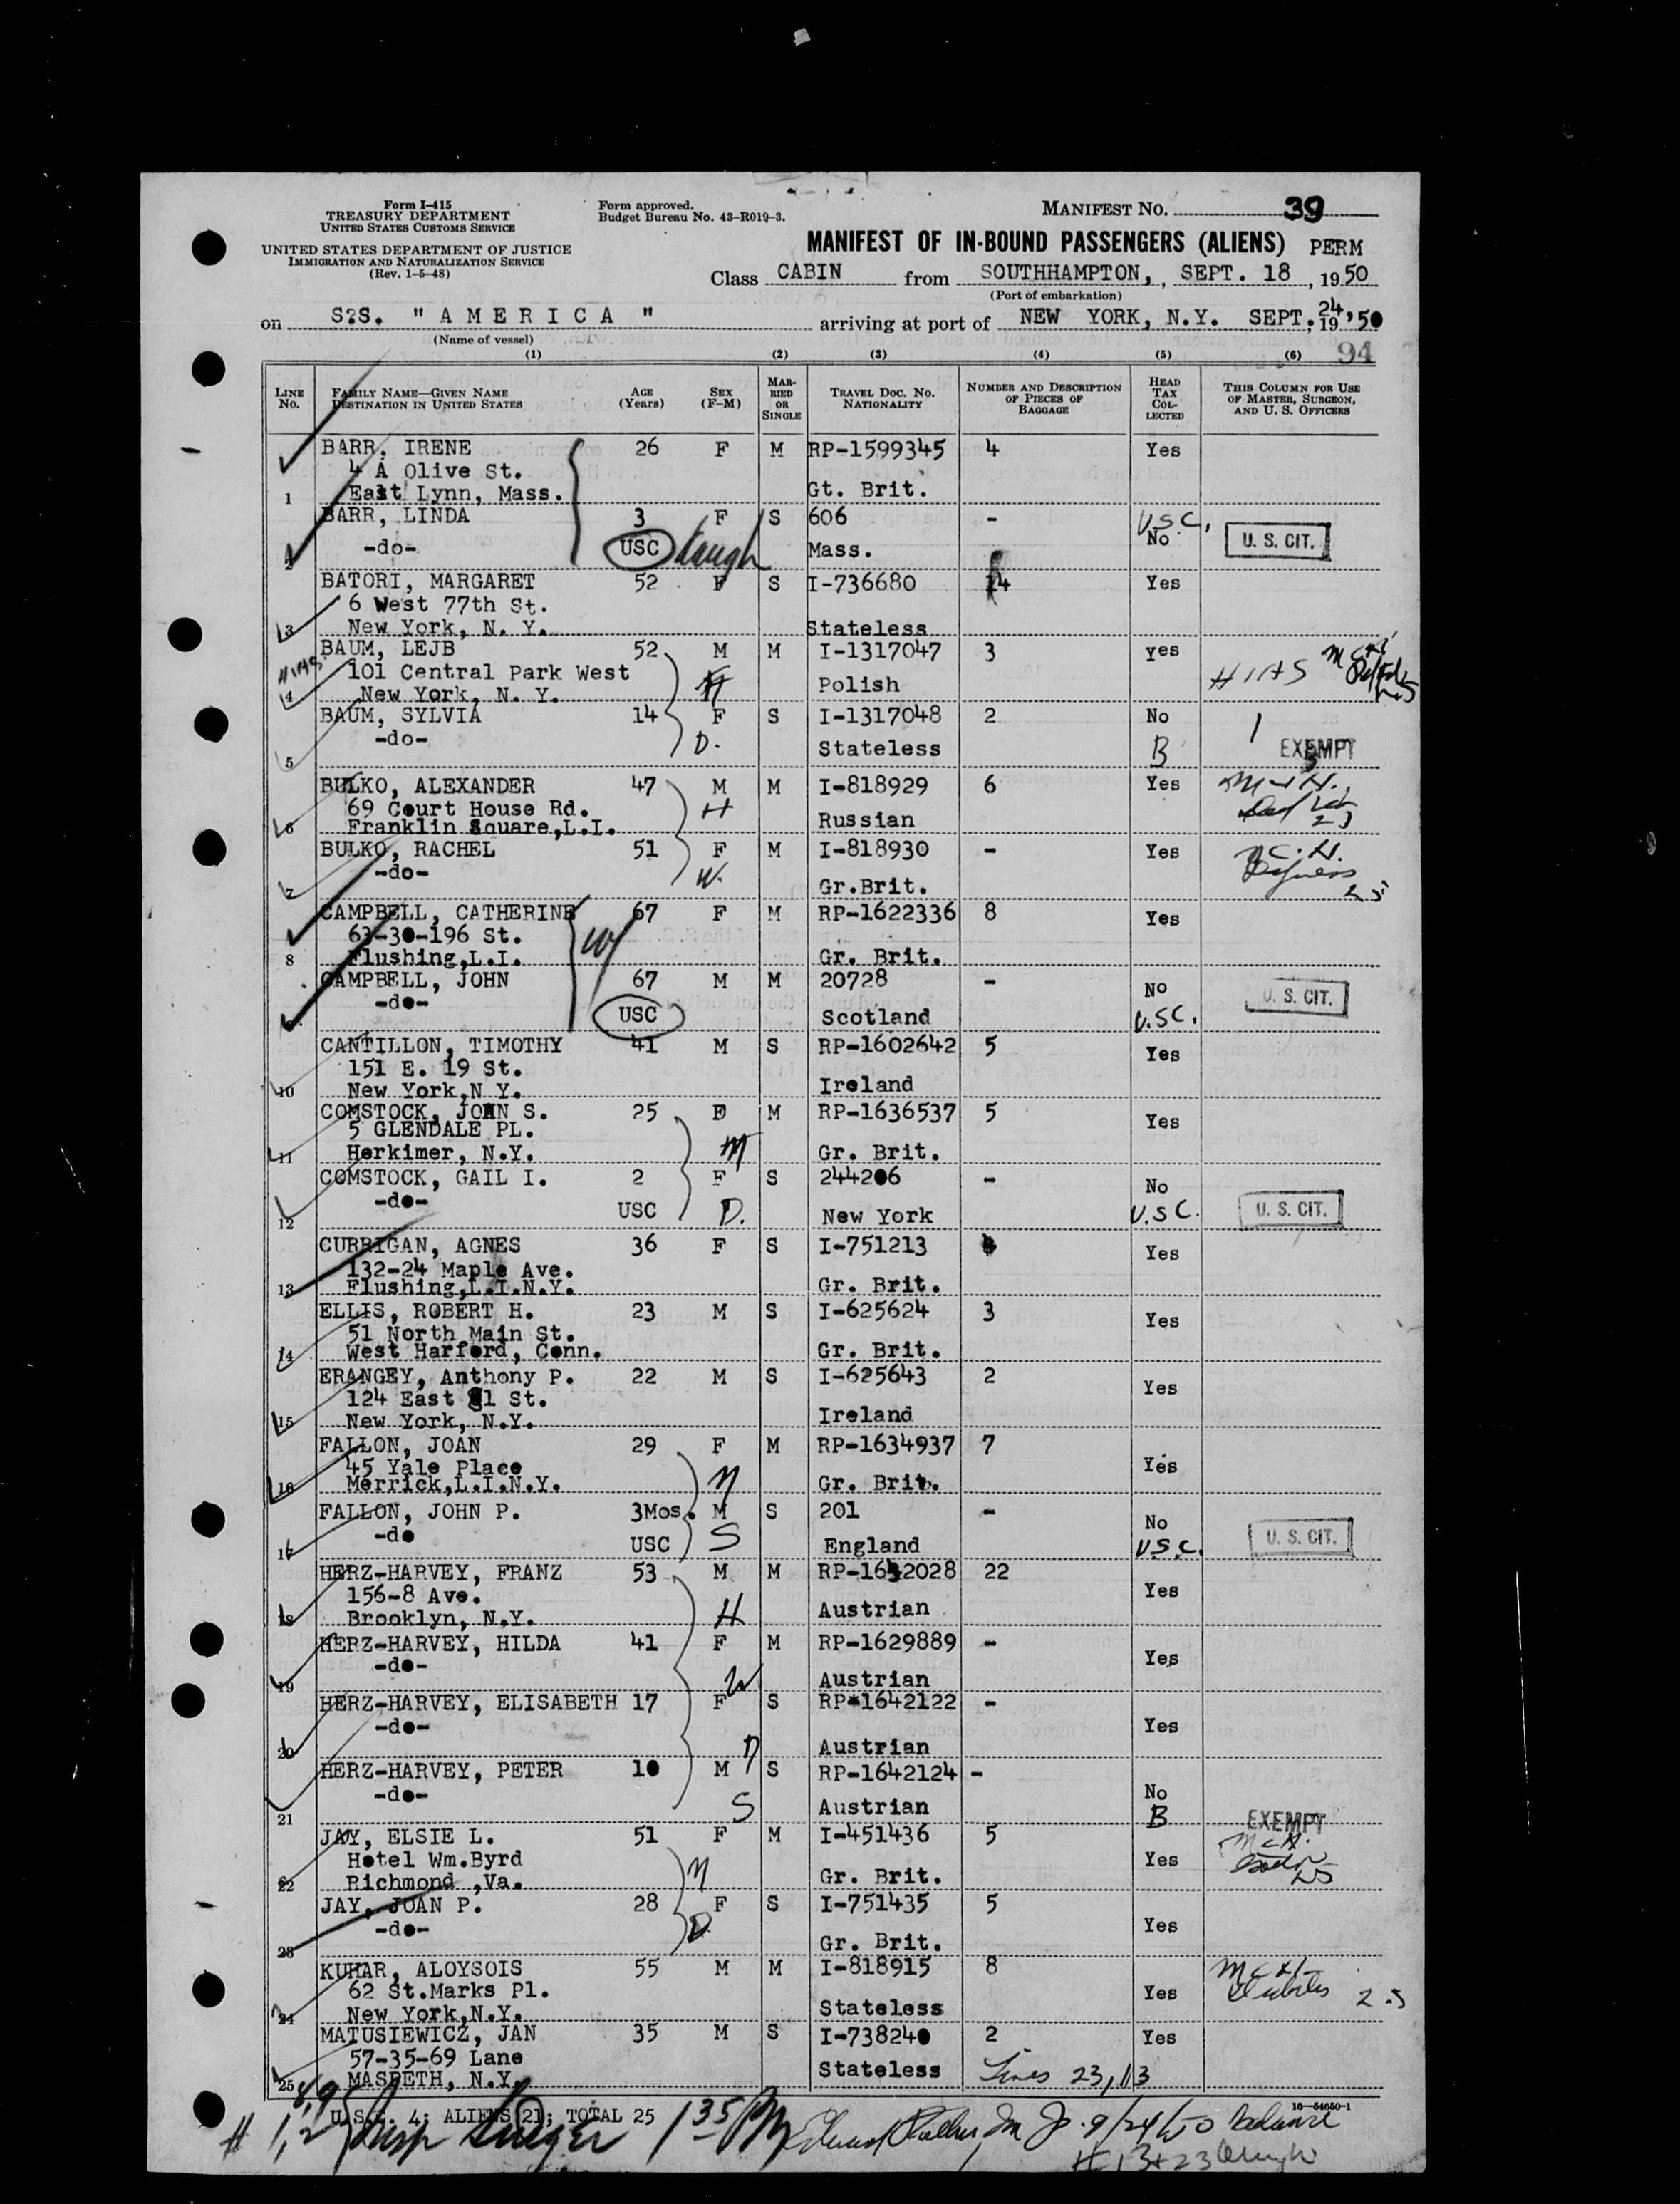 Form I-415
TREASURY DEPARTMENT
UNITED STATES CUSTOMS SERVICE
UNITED STATES DEPARTMENT OF JUSTICE
IMMIGRATION AND NATURALIZATION SERVICE
(Rev. 1-5-48)
Form approved.
Budget Bureau No. 43-R019-3.
MANIFEST NO. 39
MANIFEST OF IN-BOUND PASSENGERS (ALIENS) PERM
Class CABIN from SOUTHHAMPTON, , SEPT. 18 , 1950
(Port of embarkation)
on S?S. "AMERICA" arriving at port of NEW YORK, N.Y. SEPT. 24, 1950
(Name of vessel)
(1) (2) (3) (4) (5) (6) 94
LINE No. FAMILY NAME—GIVEN NAME DESTINATION IN UNITED STATES AGE (Years) SEX (F-M) MARRIED OR SINGLE TRAVEL DOC. NO. NATIONALITY NUMBER AND DESCRIPTION OF PIECES OF BAGGAGE HEAD TAX COLLECTED THIS COLUMN FOR USE OF MASTER, SURGEON, AND U. S. OFFICERS
BARR, IRENE 26 F M RP-1599345 4 Yes
4 A Olive St.
1 East Lynn, Mass. Gt. Brit.
BARR, LINDA 3 F S 606 - U.S.C. No U. S. CIT.
2 -do- USC Mass.
BATORI, MARGARET 52 F S I-736680 14 Yes
6 West 77th St.
3 New York, N. Y. Stateless
BAUM, LEJB 52 M M I-1317047 3 Yes
HIAS 101 Central Park West H Polish HIAS
4 New York, N. Y.
BAUM, SYLVIA 14 F S I-1317048 2 No
5 -do- D. Stateless B EXEMPT
BULKO, ALEXANDER 47 M M I-818929 6 Yes
69 Court House Rd. H
6 Franklin Square,L.I. Russian
BULKO, RACHEL 51 F M I-818930 - Yes
7 -do- W. Gr.Brit.
CAMPBELL, CATHERINE 67 F M RP-1622336 8 Yes
63-30-196 St. W
8 Flushing,L.I. Gr. Brit.
CAMPBELL, JOHN 67 M M 20728 - No U. S. CIT.
9 -do- USC Scotland U.SC.
CANTILLON, TIMOTHY 41 M S RP-1602642 5 Yes
151 E. 19 St.
10 New York,N Y. Ireland
COMSTOCK, JOAN S. 25 F M RP-1636537 5 Yes
5 GLENDALE PL.
11 Herkimer, N.Y. M Gr. Brit.
COMSTOCK, GAIL I. 2 F S 244206 - No
12 -do- USC D. New York U.S C. U. S. CIT.
CURRIGAN, AGNES 36 F S I-751213 4 Yes
132-24 Maple Ave.
13 Flushing,L.I.N.Y. Gr. Brit.
ELLIS, ROBERT H. 23 M S I-625624 3 Yes
51 North Main St.
14 West Harford, Conn. Gr. Brit.
ERANGEY, Anthony P. 22 M S I-625643 2 Yes
124 East 81 St.
15 New York, N.Y. Ireland
FALLON, JOAN 29 F M RP-1634937 7 Yes
45 Yale Place
16 Merrick,L.I.N.Y. M Gr. Brit.
FALLON, JOHN P. 3Mos. M S 201 - No
17 -do USC S England U.S.C. U. S. CIT.
HERZ-HARVEY, FRANZ 53 M M RP-1632028 22 Yes
156-8 Ave.
18 Brooklyn, N.Y. H Austrian
HERZ-HARVEY, HILDA 41 F M RP-1629889 - Yes
19 -do- W Austrian
HERZ-HARVEY, ELISABETH 17 F S RP*1642122 - Yes
20 -do- D Austrian
HERZ-HARVEY, PETER 10 M S RP-1642124 - No
21 -do- S Austrian B EXEMPT
JAY, ELSIE L. 51 F M I-451436 5 Yes
Hotel Wm.Byrd
22 Richmond ,Va. M Gr. Brit.
JAY, JOAN P. 28 F S I-751435 5 Yes
23 -do- D Gr. Brit.
KUHAR, ALOYSOIS 55 M M I-818915 8 Yes
62 St.Marks Pl.
24 New York,N.Y. Stateless
MATUSIEWICZ, JAN 35 M S I-738240 2 Yes
57-35-69 Lane
25 MASPETH, N.Y. Stateless Lines 23, 13
U.S.C. 4; ALIENS 21; TOTAL 25
16-54650-1
# 1,2 8,9 1 35 PM 9/24/50 Balance
# 13+23